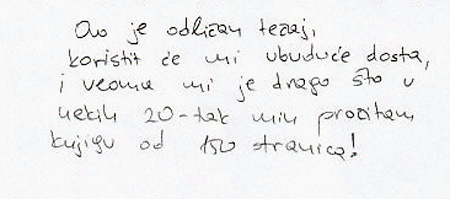 Ovo je odličan tečaj,
koristit će mi ubuduće dosta,
i veoma mi je drago što u
nekih 20-tak min pročitam
knjigu od 150 stranica!